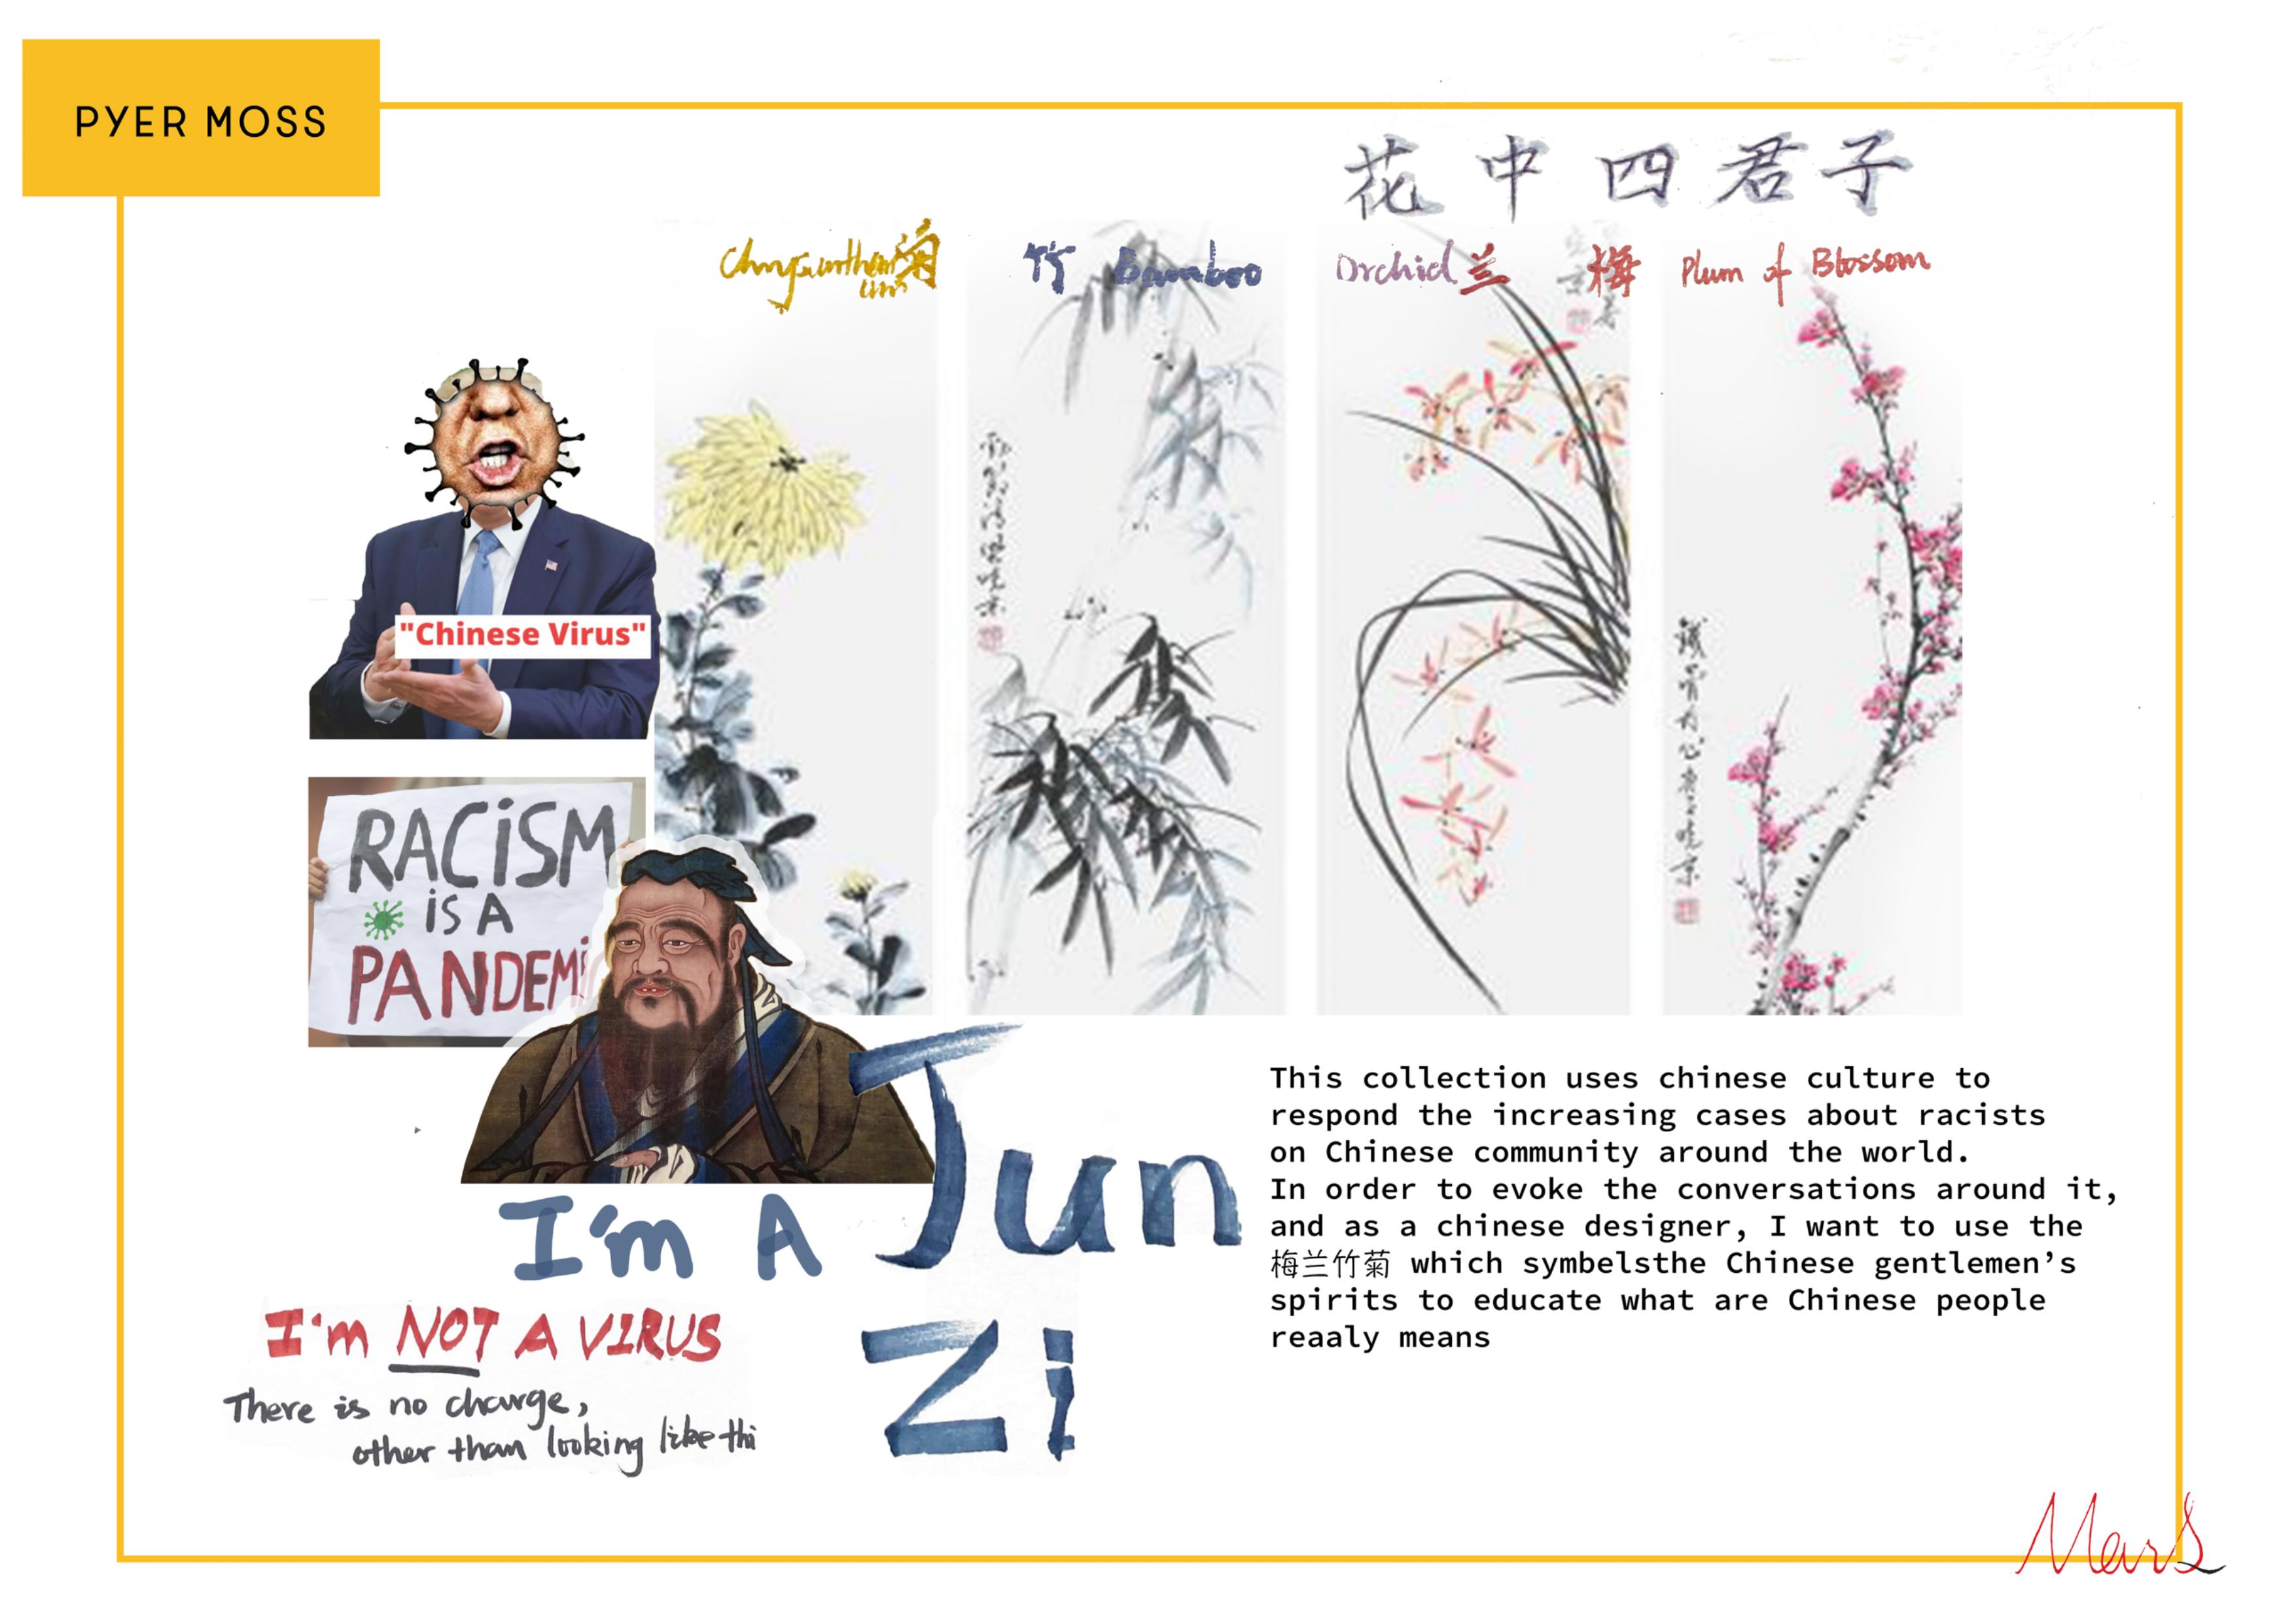 PYER MOSS
花中四君子
Chrysanthemum 菊
竹 Bamboo
Orchid 兰
梅 Plum of Blossom
"Chinese Virus"
RACiSM
iS A
PANDEMi
I'm A Jun
Zi
I'm NOT A VIRUS
There is no charge,
other than looking like thi
This collection uses chinese culture to
respond the increasing cases about racists
on Chinese community around the world.
In order to evoke the conversations around it,
and as a chinese designer, I want to use the
梅兰竹菊 which symbelsthe Chinese gentlemen’s
spirits to educate what are Chinese people
reaaly means
MarS